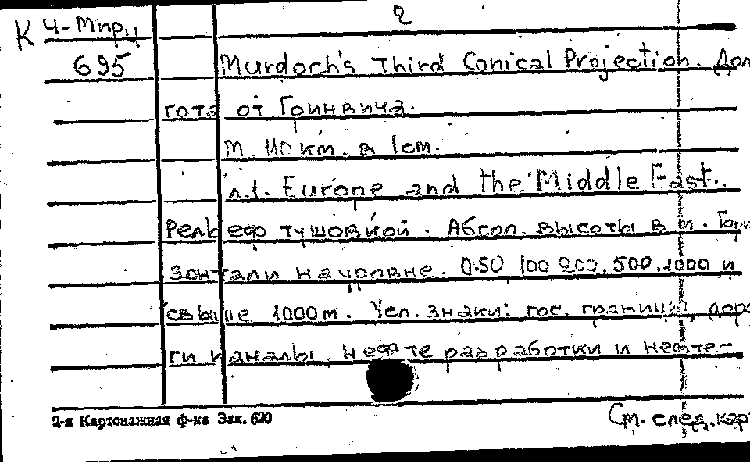 2
К 4-Мпрц
695 Murdoch's Third Conical Projection. Дол
гота от Гринвича.
М. 110 км. в 1 см.
л.1. Europe and the Middle East.
Рельеф тушовкой. Абсол. высоты в м. Гори
зонтали на уровне. 0.50 100 200, 500, 1000 и
свыше 1000 м. Усл. знаки: гос. границы, доро
ги каналы, нефте разработки и нефте-
2-я Картонажная ф-ка Зак. 620
См. след. карт